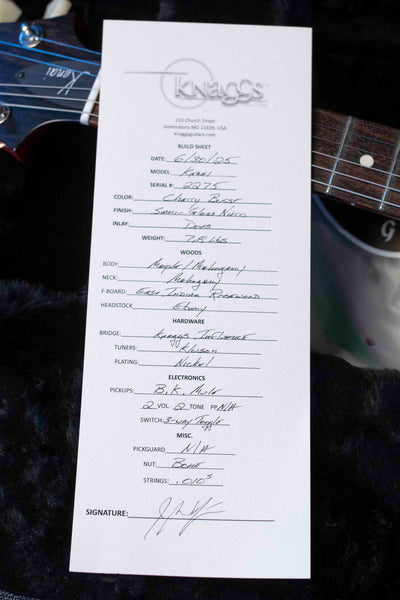 Kenai
KNaGGS
213 Church Street
Greensboro MD 21639, USA
knaggsguitars.com
BUILD SHEET
DATE: 6/30/25
MODEL Kenai
SERIAL #: 2275
COLOR: Cherry Burst
FINISH: Semi Gloss Nitro
INLAY: Dots
WEIGHT: 7.8 Lbs
WOODS
BODY: Maple / Mahogany
NECK: Mahogany
F-BOARD: East Indian Rosewood
HEADSTOCK: Ebony
HARDWARE
BRIDGE: Knaggs Influence
TUNERS: Kluson
PLATING: Nickel
ELECTRONICS
PICKUPS: B.K. Mule
2 VOL. 2 TONE PP N/A
SWITCH: 3-way Toggle
MISC.
PICKGUARD N/A
NUT: Bone
STRINGS: .010s
SIGNATURE:
G